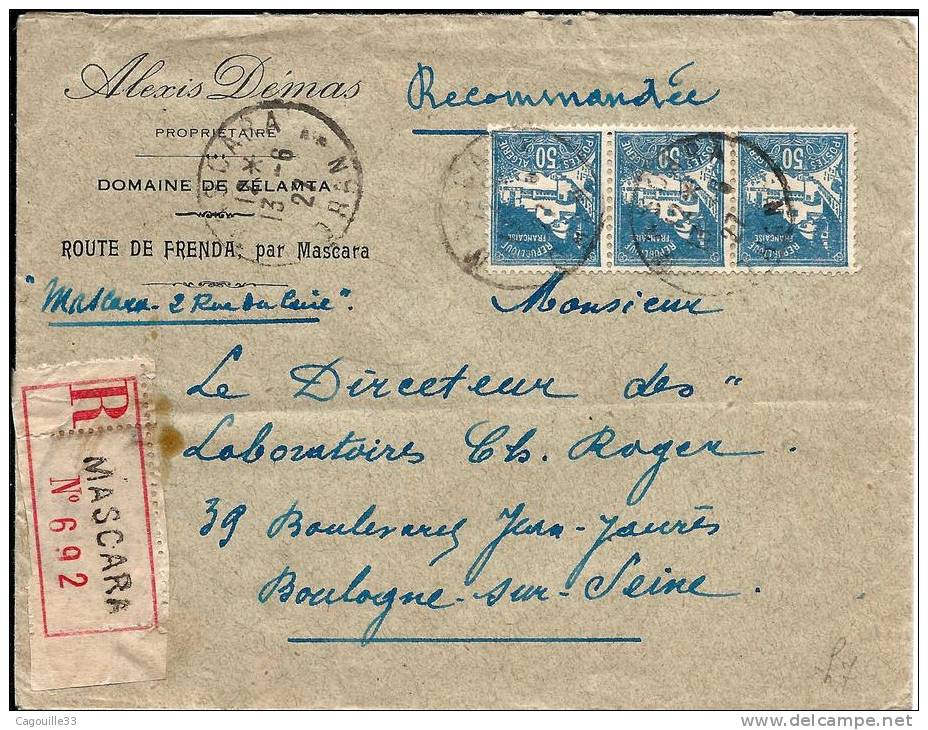 Alexis Démas
PROPRIÉTAIRE
DOMAINE DE ZÉLAMTA
ROUTE DE FRENDA, par Mascara
"Mascara - 2 Rue du Caire".
Recommandée
MASCARA
ORAN
13 -6
POSTES ALGÉRIE
50
RÉPUBLIQUE
FRANÇAISE
POSTES ALGÉRIE
50
RÉPUBLIQUE
FRANÇAISE
POSTES ALGÉRIE
50
RÉPUBLIQUE
FRANÇAISE
Monsieur
Le Dirceteur des "
Laboratoires Ch. Roger.
39 Boulevard Jean-Jaurès
Boulogne-sur-Seine.
R
MASCARA
Nº 692
Cagouille33
www.delcampe.net